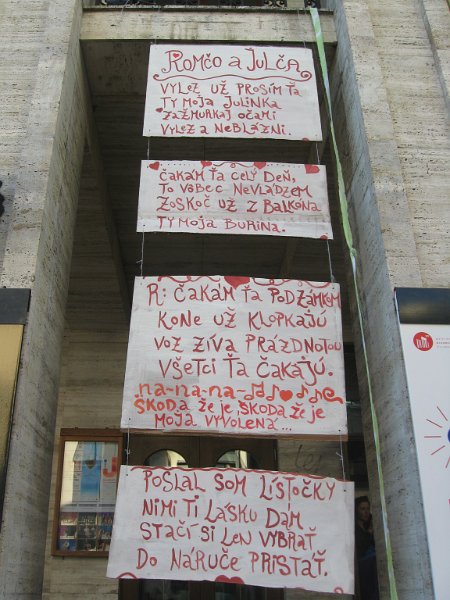 ROMČO A JULČA
VYLEZ UŽ PROSÍM ŤA
TY MOJA JULINKA
ZAŽMURKAJ OČAMI
VYLEZ A NEBLÁZNI.
ČAKÁM ŤA CELÝ DEŇ,
TO VÔBEC NEVLÁDZEM
ZOSKOČ UŽ Z BALKONA
TY MOJA BURINA.
R: ČAKÁM ŤA POD ZÁMKOM
KONE UŽ KLOPKAJÚ
VOZ ZÍVA PRÁZDNOTOU
VŠETCI ŤA ČAKAJÚ.
na-na-na-
ŠKODA ŽE JE ŠKODA ŽE JE
MOJA VYVOLENÁ...
POSLAL SOM LÍSTOČKY
NIMI TI LÁSKU DÁM
STAČÍ SI LEN VYBRAŤ
DO NÁRUČE PRISTÁŤ.